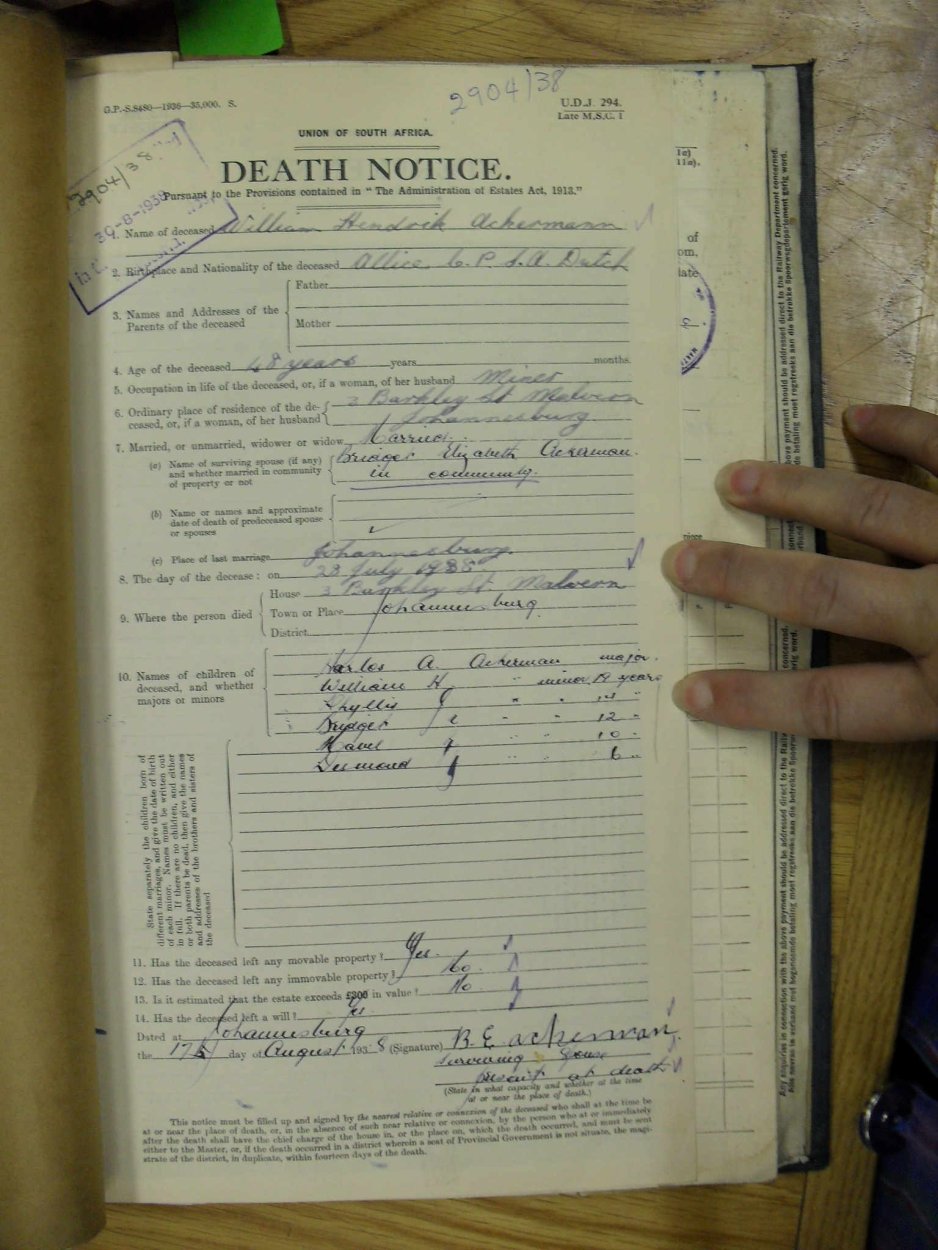 G.P.-S.8480—1936—35,000. S.
2904/38
U.D.J. 294.
Late M.S.C. 1
UNION OF SOUTH AFRICA.
DEATH NOTICE.
Pursuant to the Provisions contained in "The Administration of Estates Act, 1913."
2904/38
1. Name of deceased William Hendrik Ackermann
2. Birthplace and Nationality of the deceased Allice C.P. S.A. Dutch
3. Names and Addresses of the Parents of the deceased
Father
Mother
4. Age of the deceased 48 years years months.
5. Occupation in life of the deceased, or, if a woman, of her husband Miner
6. Ordinary place of residence of the de-
ceased, or, if a woman, of her husband
3 Barkley St Malvern
Johannesburg
7. Married, or unmarried, widower or widow Married.
(a) Name of surviving spouse (if any)
and whether married in community
of property or not
Bridget Elizabeth Ackerman.
in community.
(b) Name or names and approximate
date of death of predeceased spouse
or spouses
(c) Place of last marriage Johannesburg.
8. The day of the decease: on 28 July 1938
9. Where the person died
House 3 Barkley St Malvern
Town or Place Johannesburg
District
10. Names of children of
deceased, and whether
majors or minors
A. Ackerman major.
William H. " minor 19 years
Phyllis " " 14 "
Bridget " " 12 "
Mavis " " 10 "
Desmond " " 6 "
State separately the children born of
different marriages, and give the date of birth
of each minor. Names must be written out
in full. If there are no children, and either
or both parents be dead, then give the names
and addresses of the brothers and sisters of
the deceased
11. Has the deceased left any movable property? Yes.
12. Has the deceased left any immovable property? No.
13. Is it estimated that the estate exceeds £300 in value? No.
14. Has the deceased left a will? Yes
Dated at Johannesburg
the 17th day of August 1938 (Signature) B. E. ackerman
surviving spouse
present at death
(State in what capacity and whether at the time
at or near the place of death.)
This notice must be filled up and signed by the nearest relative or connexion of the deceased who shall at the time be
at or near the place of death, or, in the absence of such near relative or connexion, by the person who at or immediately
after the death shall have the chief charge of the house in, or the place on, which the death occurred, and must be sent
either to the Master, or, if the death occurred in a district wherein a seat of Provincial Government is not situate, the magi-
strate of the district, in duplicate, within fourteen days of the death.